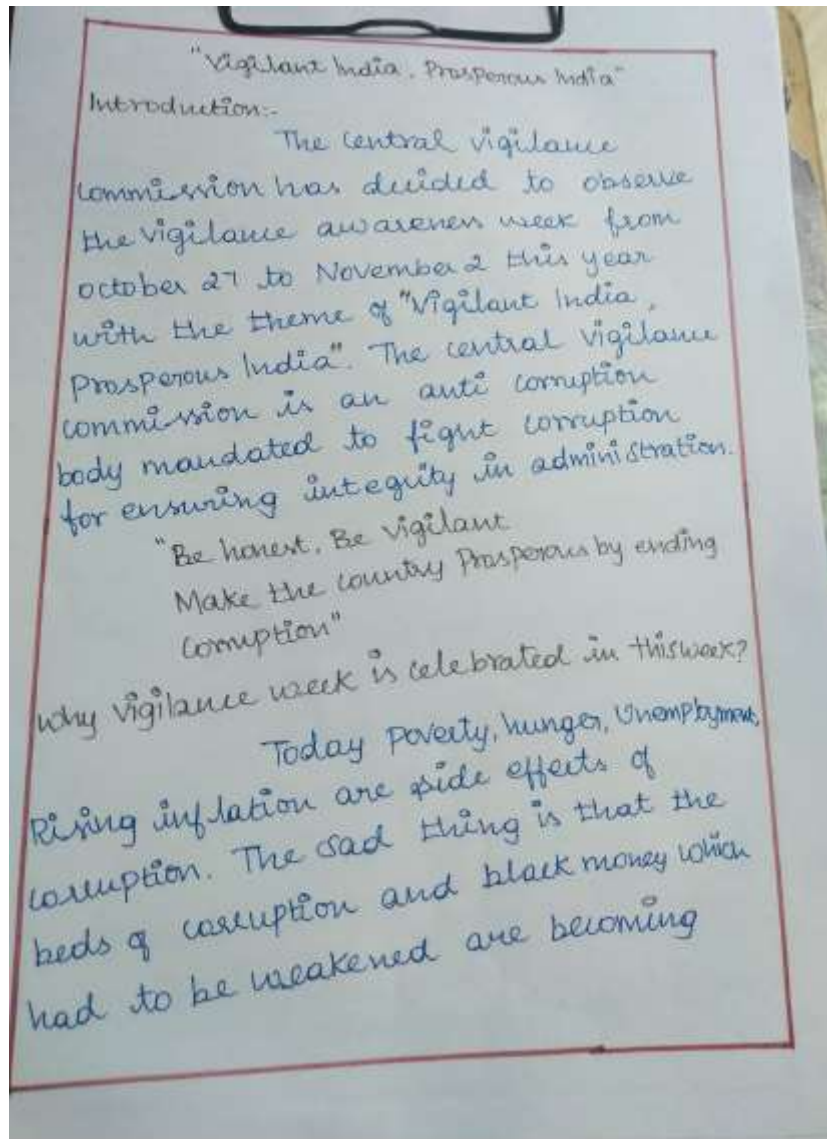 "Vigilant India, Prosperous India"
Introduction:-
The central vigilance
commission has decided to observe
the vigilance awareness week from
october 27 to November 2 this year
with the theme of "Vigilant India,
Prosperous India". The central vigilance
commission is an anti corruption
body mandated to fight corruption
for ensuring integrity in administration.
"Be honest, Be vigilant
Make the country Prosperous by ending
Corruption"
Why vigilance week is celebrated in this week?
Today poverty, hunger, Unemployment,
Rising inflation are side effects of
corruption. The sad thing is that the
beds of corruption and black money which
had to be weakened are becoming